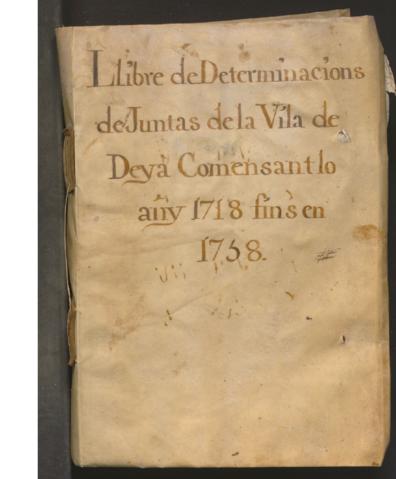 Llibre de Determinacions
de Juntas de la Vila de
Deyà Comensant lo
añy 1718 fins en
1758.